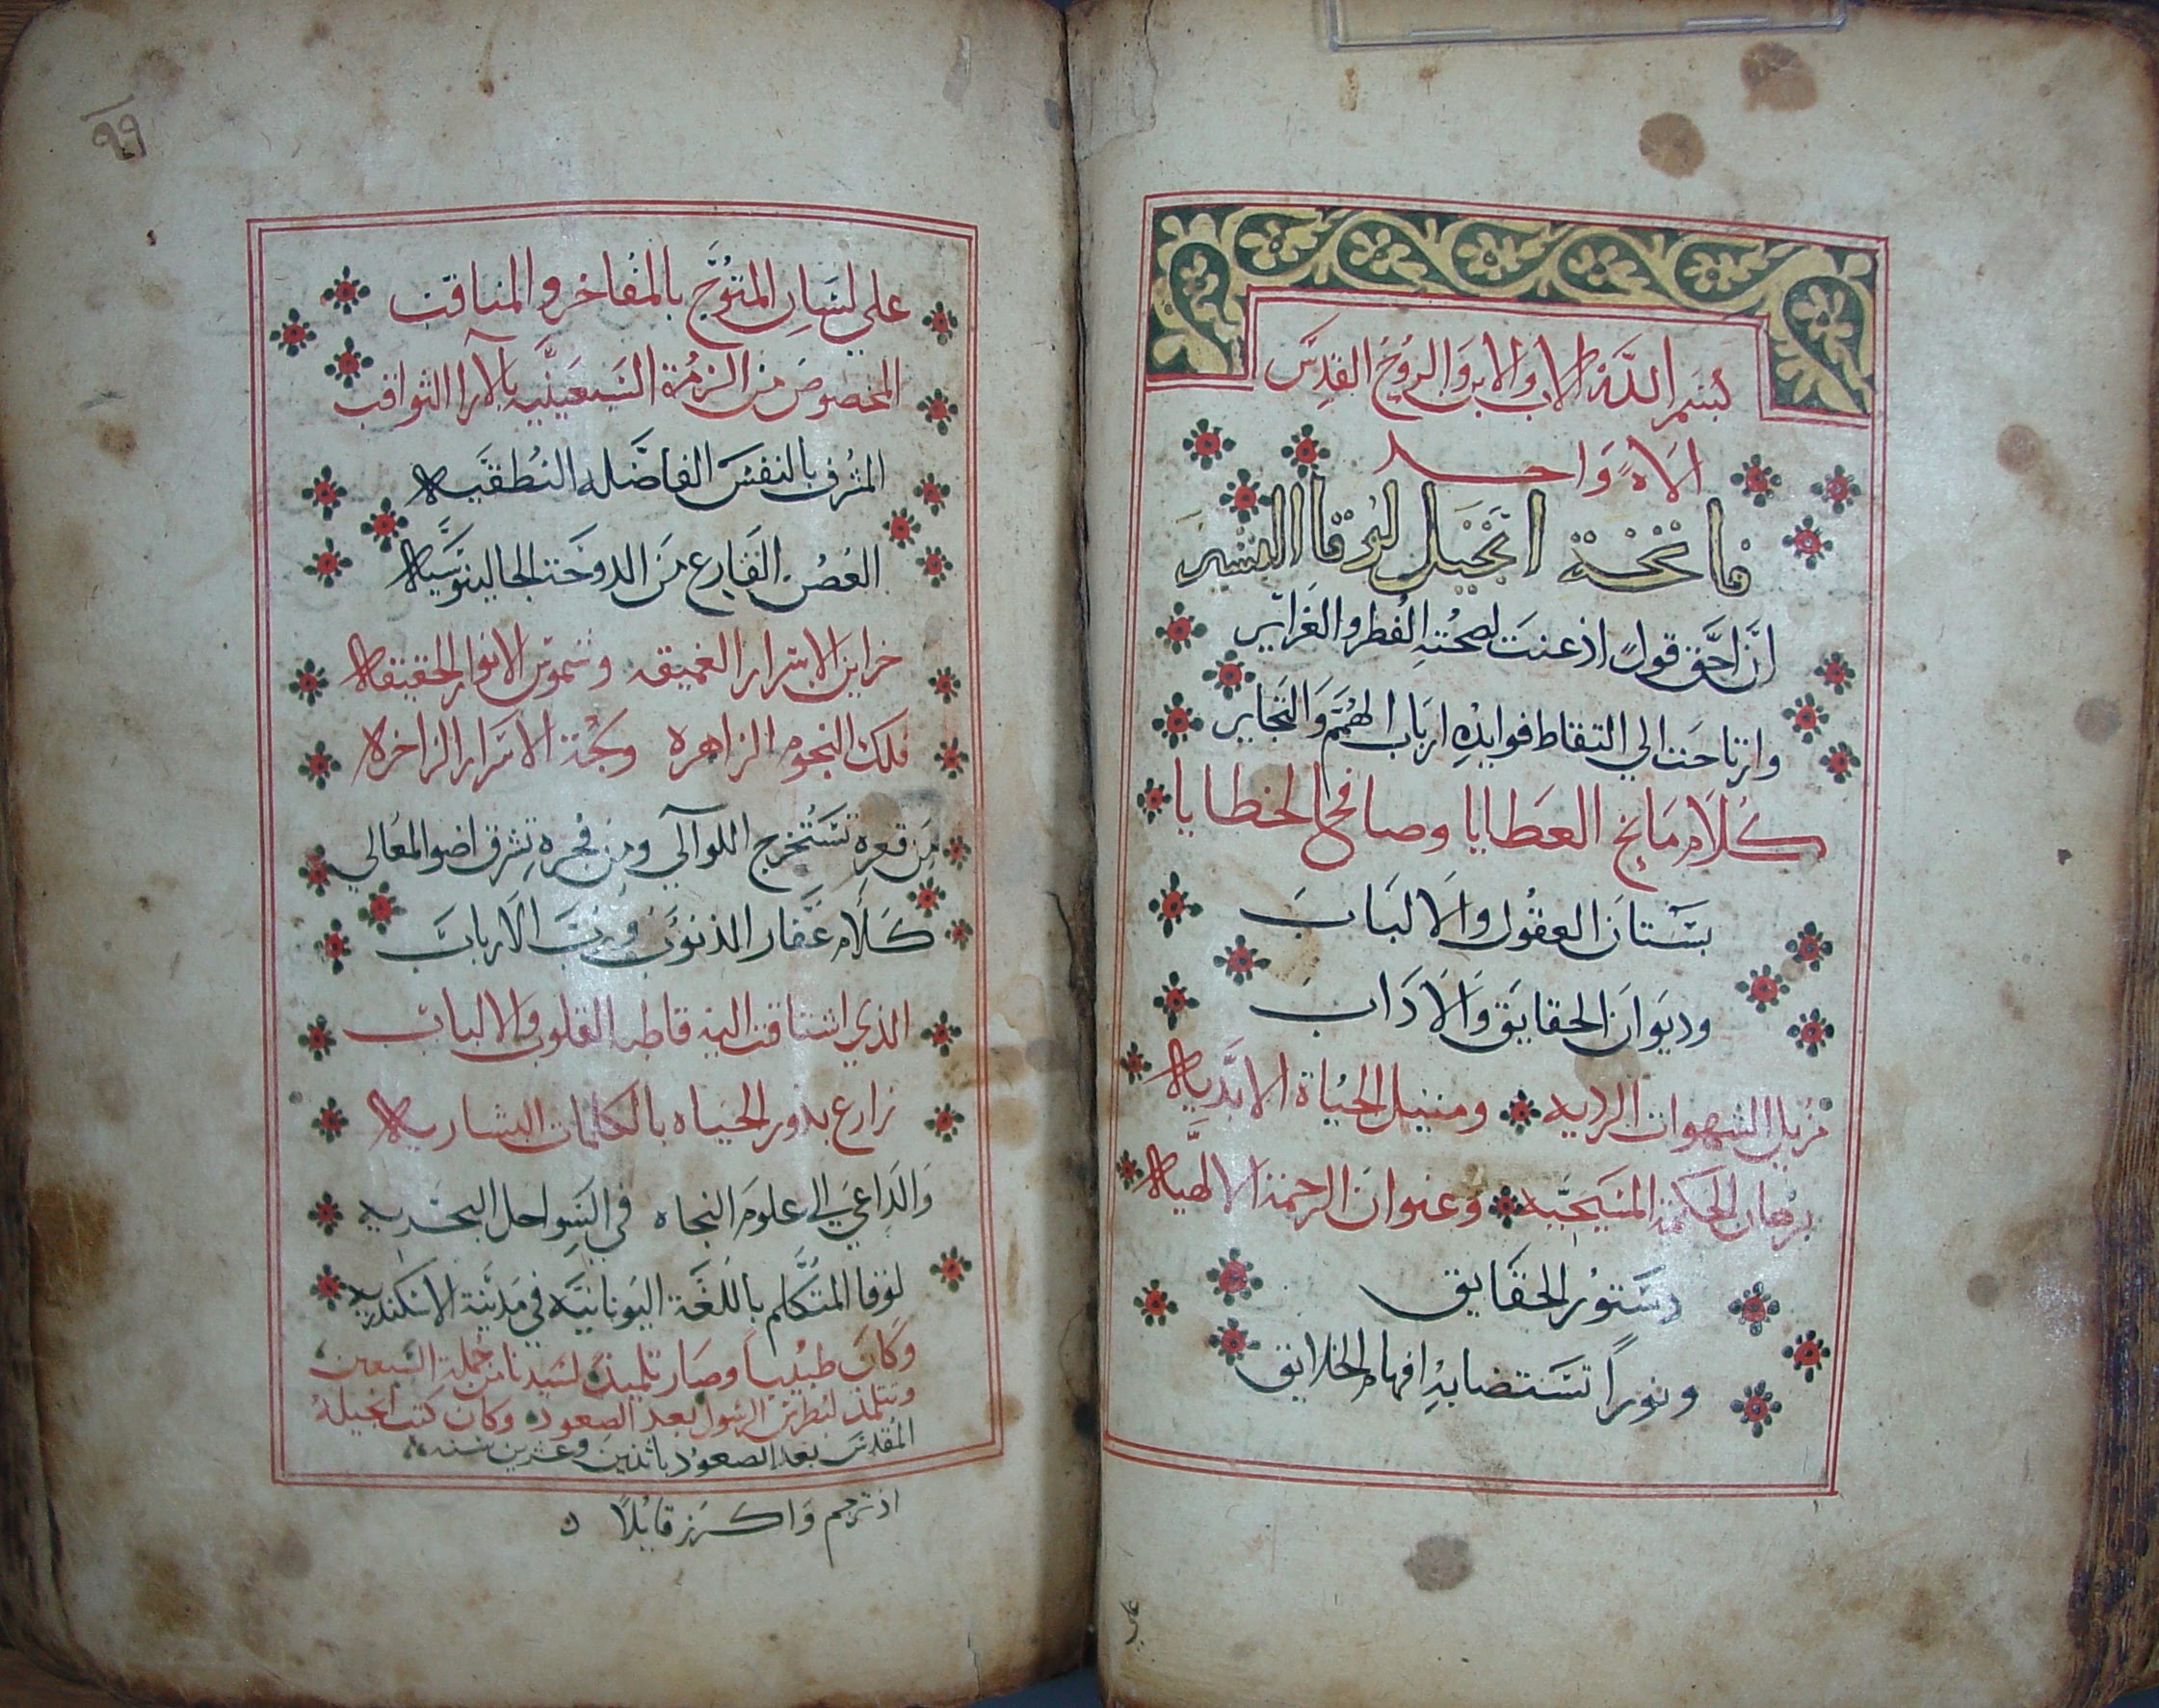 بسم الله الاب والابن والروح القدس
الاه واحد
فاتحة انجيل لوقا البشير
ان احق قول اذعنت لصحته الفطر والغراير
وارتاحت الي التقاط فوايده ارباب الهمم والنحاير
كلام مانح العطايا وصافح الخطايا
بستان العقول والالباب
وديوان الحقايق والاداب
مزيل الشهوات الرديه ومنيل الحياة الابديه
برهان الحكمة المسيحيه وعنوان الرحمة الالهيه
دستور الحقايق
ونورا تستضا به افهام الخلايق
علي
٩٩
علي لسان المتوج بالمفاخر والمناقب
المخصوص من الزمرة السبعينيه بالآرا الثواقب
المشرف بالنفس الفاضله النطقيه
الغصن الفارع من الدوحة الجالينوسيه
خزاين الاسرار العميقه وشموس الانوار الحقيقه
فلك النجوم الزاهره ولجة الاسرار الزاخره
من قعره تستخرج اللوآلي ومن فجره تشرق اضوا المعالي
كلام غفار الذنوب ورب الارباب
الذي اشتاقت اليه قاطبه القلوب والالباب
زارع بدور الحياه بالكلمات البشاريه
والداعي الي علوم النجاه في السواحل البحريه
لوقا المتكلم باللغة اليونانيه في مدينة الاسكندريه
وكان طبيبا وصار تلميذ لسيدنا من جملة السبعين
وتتلمذ لبطرس الرسول بعد الصعود وكان كتب انجيله
المقدس بعد الصعود باثنين وعشرين سنه
اذ ترجم واكرز قايلا